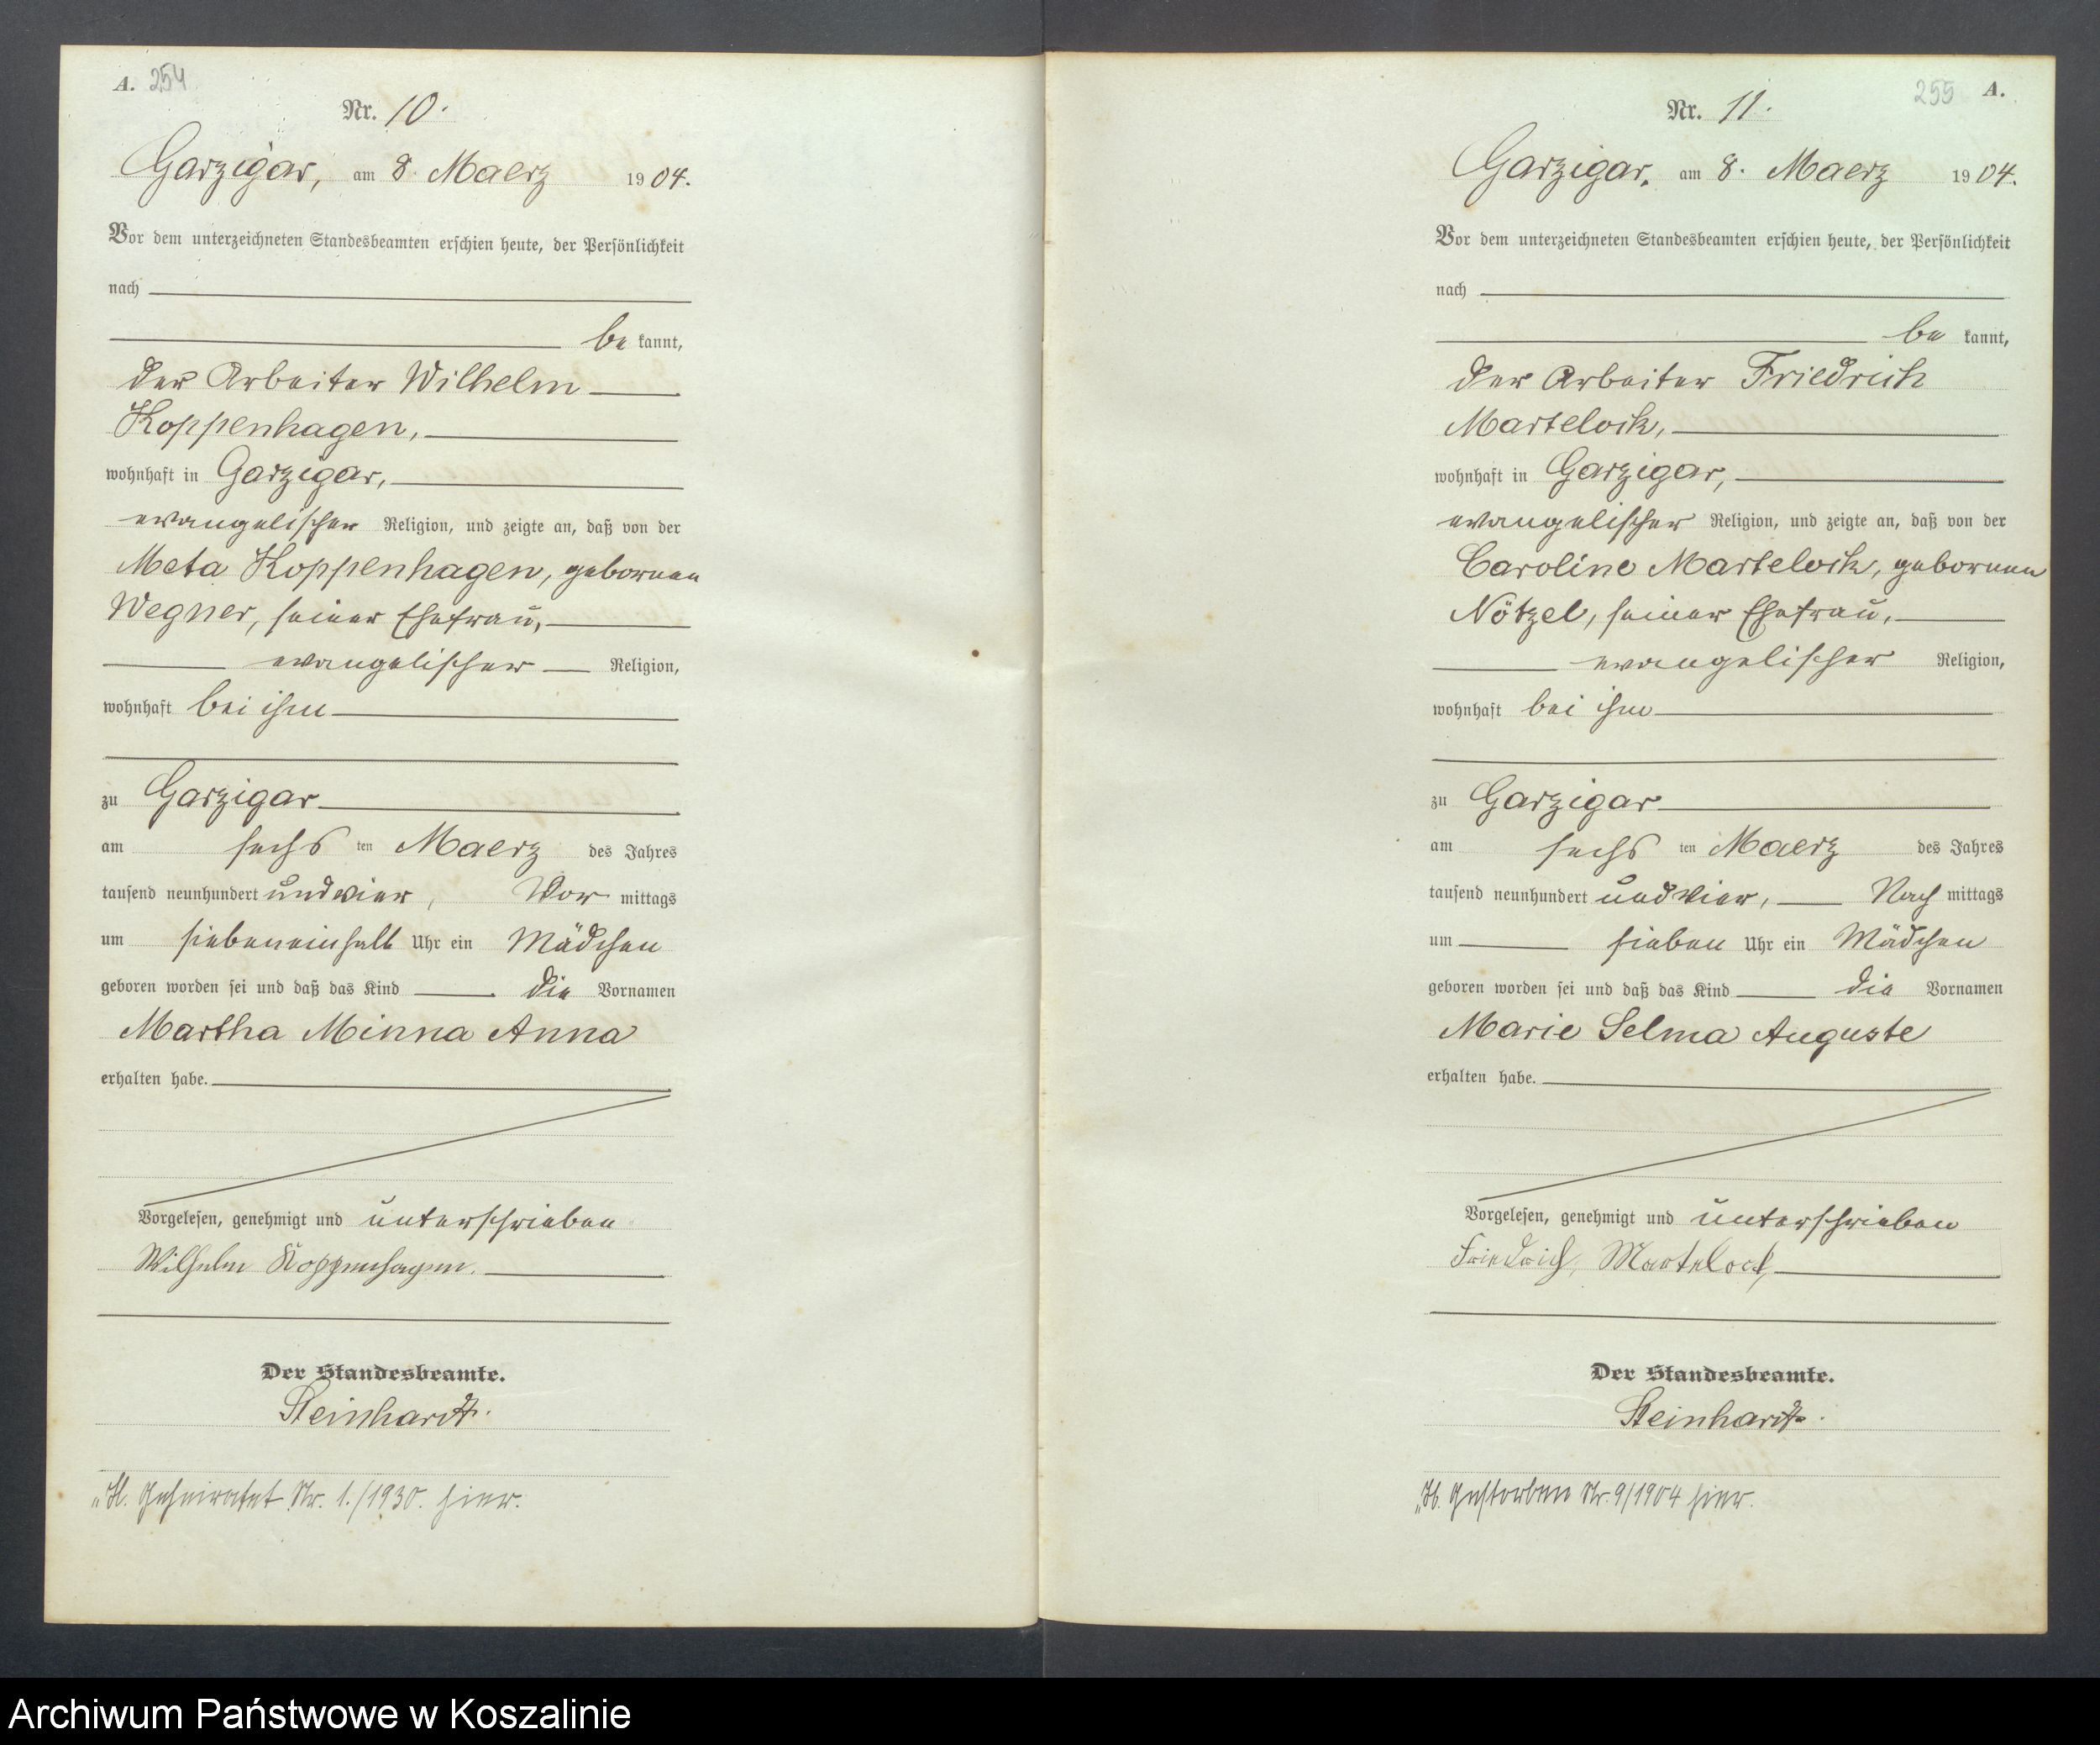 A. 254
Nr. 10.
Garzigar, am 8. Maerz 1904.
Vor dem unterzeichneten Standesbeamten erschien heute, der Persönlichkeit
nach
be kannt,
der Arbeiter Wilhelm
Koppenhagen,
wohnhaft in Garzigar,
evangelischer Religion, und zeigte an, daß von der
Meta Koppenhagen, geborenen
Wegner, seiner Ehefrau,
evangelischer Religion,
wohnhaft bei ihm
zu Garzigar
am sechs ten Maerz des Jahres
tausend neunhundert und vier, Vor mittags
um siebeneinhalb Uhr ein Mädchen
geboren worden sei und daß das Kind die Vornamen
Martha Minna Anna
erhalten habe.
Vorgelesen, genehmigt und unterschrieben
Wilhelm Koppenhagen.
Der Standesbeamte.
Steinhardt.
Geheiratet Nr. 1./1930. hier.
255 A.
Nr. 11.
Garzigar, am 8. Maerz 1904.
Vor dem unterzeichneten Standesbeamten erschien heute, der Persönlichkeit
nach
be kannt,
der Arbeiter Friedrich
Martelock,
wohnhaft in Garzigar,
evangelischer Religion, und zeigte an, daß von der
Caroline Martelock, geborenen
Nötzel, seiner Ehefrau,
evangelischer Religion,
wohnhaft bei ihm
zu Garzigar
am sechs ten Maerz des Jahres
tausend neunhundert und vier, Nach mittags
um sieben Uhr ein Mädchen
geboren worden sei und daß das Kind die Vornamen
Marie Selma Auguste
erhalten habe.
Vorgelesen, genehmigt und unterschrieben
Friedrich Martelock,
Der Standesbeamte.
Steinhardt.
Gestorben Nr. 9/1904 hier.
Archiwum Państwowe w Koszalinie